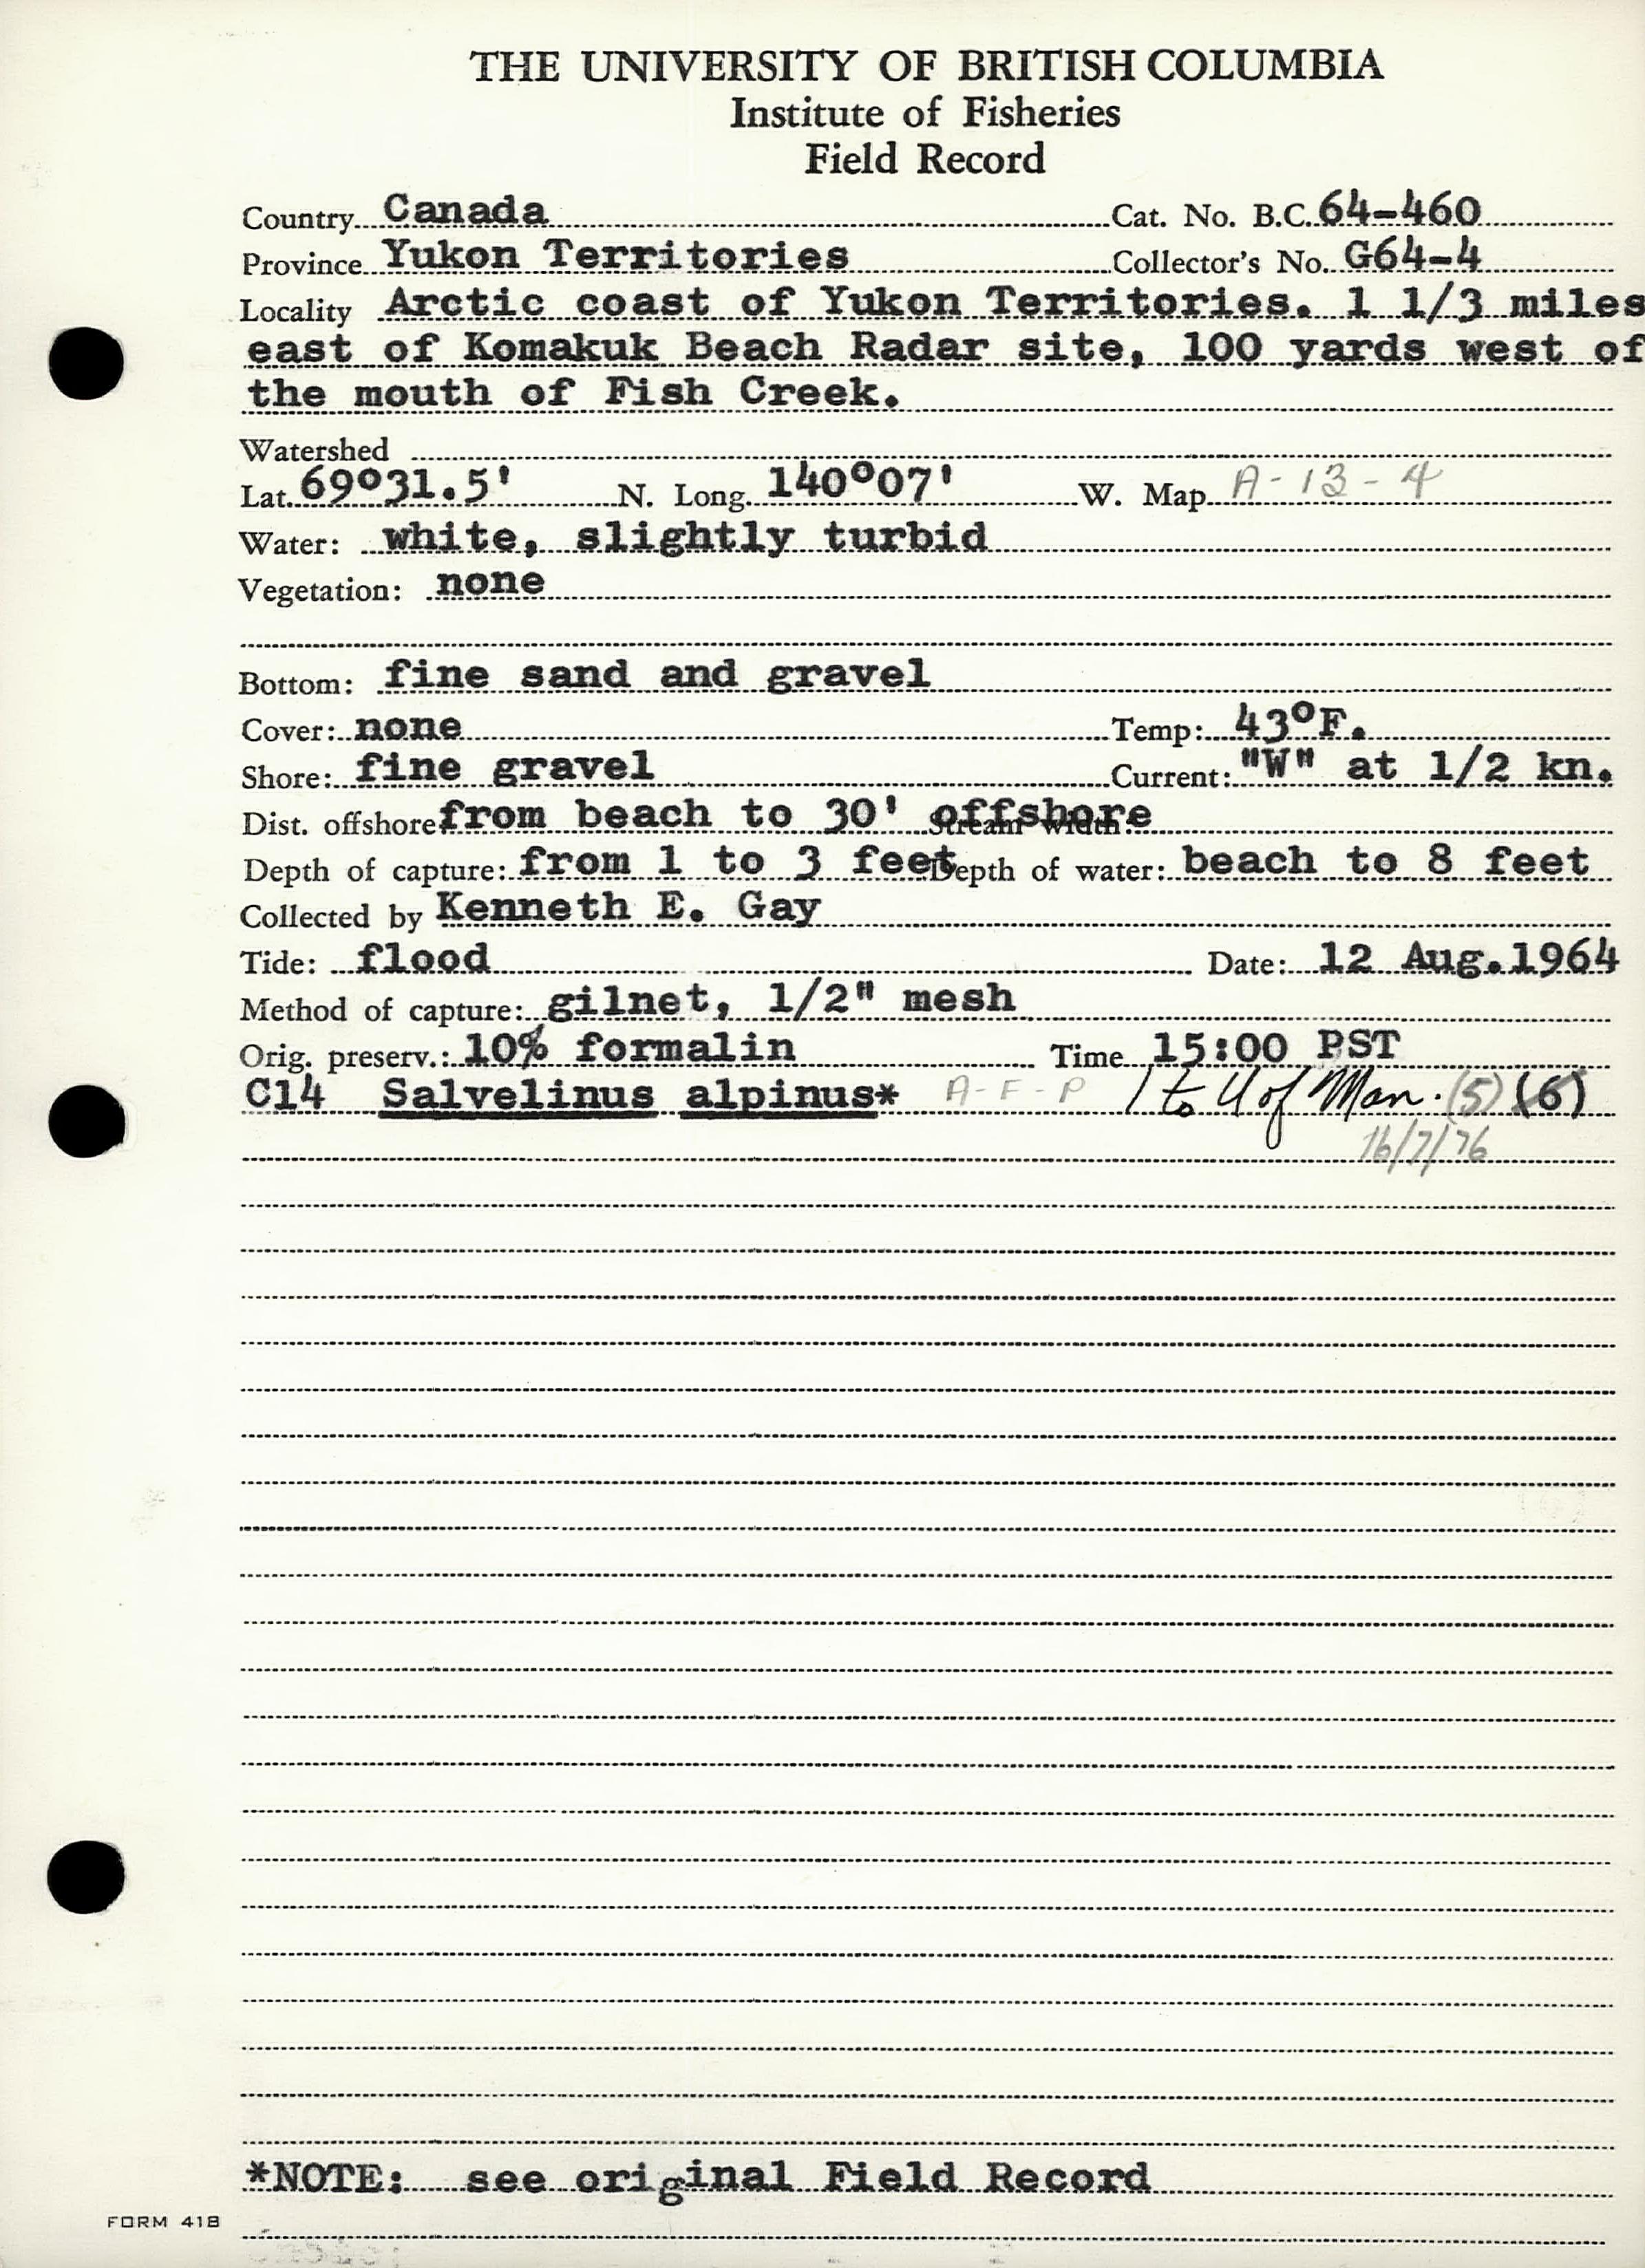 THE UNIVERSITY OF BRITISH COLUMBIA
Institute of Fisheries
Field Record
Country Canada Cat. No. B.C. 64-460
Province Yukon Territories Collector's No. G64-4
Locality Arctic coast of Yukon Territories. 1 1/3 miles
east of Komakuk Beach Radar site, 100 yards west of
the mouth of Fish Creek.
Watershed
Lat. 69°31.5' N. Long. 140°07' W. Map A-13-4
Water: white, slightly turbid
Vegetation: none
Bottom: fine sand and gravel
Cover: none Temp: 43°F.
Shore: fine gravel Current: "W" at 1/2 kn.
Dist. offshore from beach to 30' offshore Stream width:
Depth of capture: from 1 to 3 feet Depth of water: beach to 8 feet
Collected by Kenneth E. Gay
Tide: flood Date: 12 Aug. 1964
Method of capture: gilnet, 1/2" mesh
Orig. preserv.: 10% formalin Time 15:00 PST
C14 Salvelinus alpinus* A-F-P 1 to U of Man. (5) (6)
16/7/76
*NOTE: see original Field Record
FORM 41B